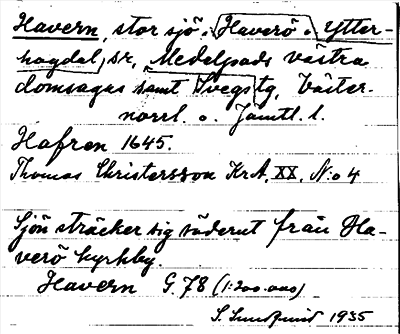 Havern, stor sjö i Haverö o. Ytter-
hogdal, sr, Medelpads västra
domsagas samt Svegs tg, Väster-
norrl. o. Jämtl. l.
Hafren 1645.
Thomas Christersson KrA. XX. N:o 4
Sjön sträcker sig söderut från Ha-
verö kyrkby.
Havern G. 78 (1:200.000)
S. Lundqvist 1935